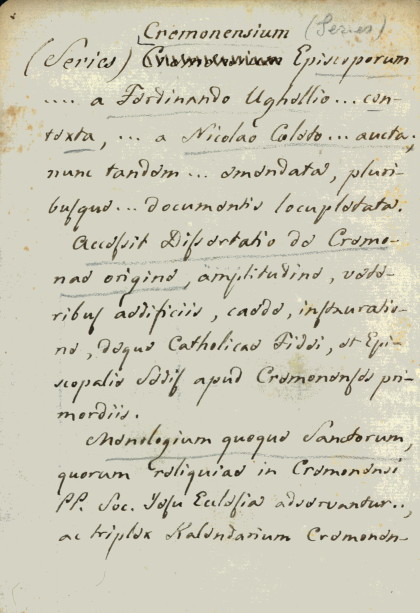 Cremonensium (Series)
(Series) Episcoporum
.... a Ferdinando Ughellio ... con-
texta, ... a Nicolao Coleto ... aucta,
nunc tandem ... emendata, pluri-
busque ... documentis locupletata.
Accessit Dissertatio de Cremo-
nae origine, amplitudine, vete-
ribus aedificiis, caede, instauratio-
ne, deque Catholicae Fidei, et Epi-
scopalis Sedis apud Cremonenses pri-
mordiis.
Menologium quoque Sanctorum,
quorum reliquiae in Cremonensi
PP. Soc. Jesu Ecclesia adservantur..,
ac triplex Kalendarium Cremonen-